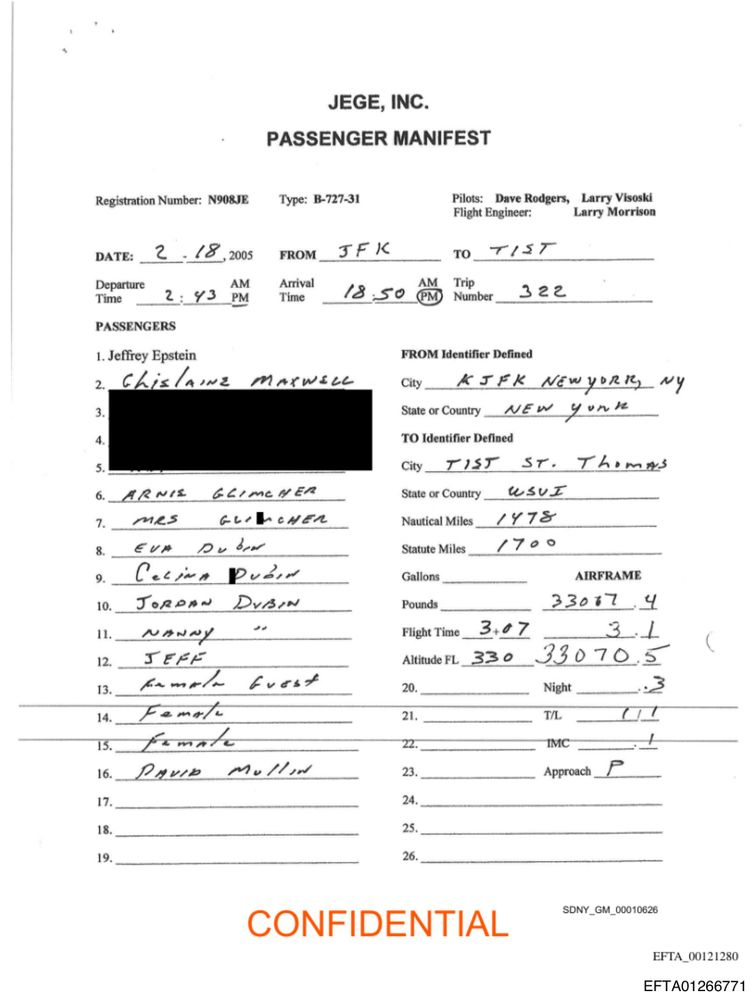 JEGE, INC.
PASSENGER MANIFEST
Registration Number: N908JE Type: B-727-31 Pilots: Dave Rodgers, Larry Visoski
Flight Engineer: Larry Morrison
DATE: 2 - 18, 2005 FROM JFK TO TIST
Departure Time 2:43 AM PM Arrival Time 18:50 AM PM Trip Number 322
PASSENGERS
1. Jeffrey Epstein
2. Ghislaine Maxwell
3.
4.
5.
6. ARNIE GLIMCHER
7. MRS GLIMCHER
8. EVA Dubin
9. Celina Dubin
10. JORDAN DUBIN
11. NANNY "
12. JEFF
13. Female Guest
14. Female
15. Female
16. DAVID Mullin
17.
18.
19.
FROM Identifier Defined
City KJFK NEW YORK, NY
State or Country NEW YORK
TO Identifier Defined
City TIST ST. Thomas
State or Country USVI
Nautical Miles 1478
Statute Miles 1700
Gallons AIRFRAME
Pounds 33067.4
Flight Time 3+07 3.1
Altitude FL 330 33070.5
20. Night .3
21. T/L 1/1
22. IMC .1
23. Approach P
24.
25.
26.
CONFIDENTIAL
SDNY_GM_00010626
EFTA_00121280
EFTA01266771